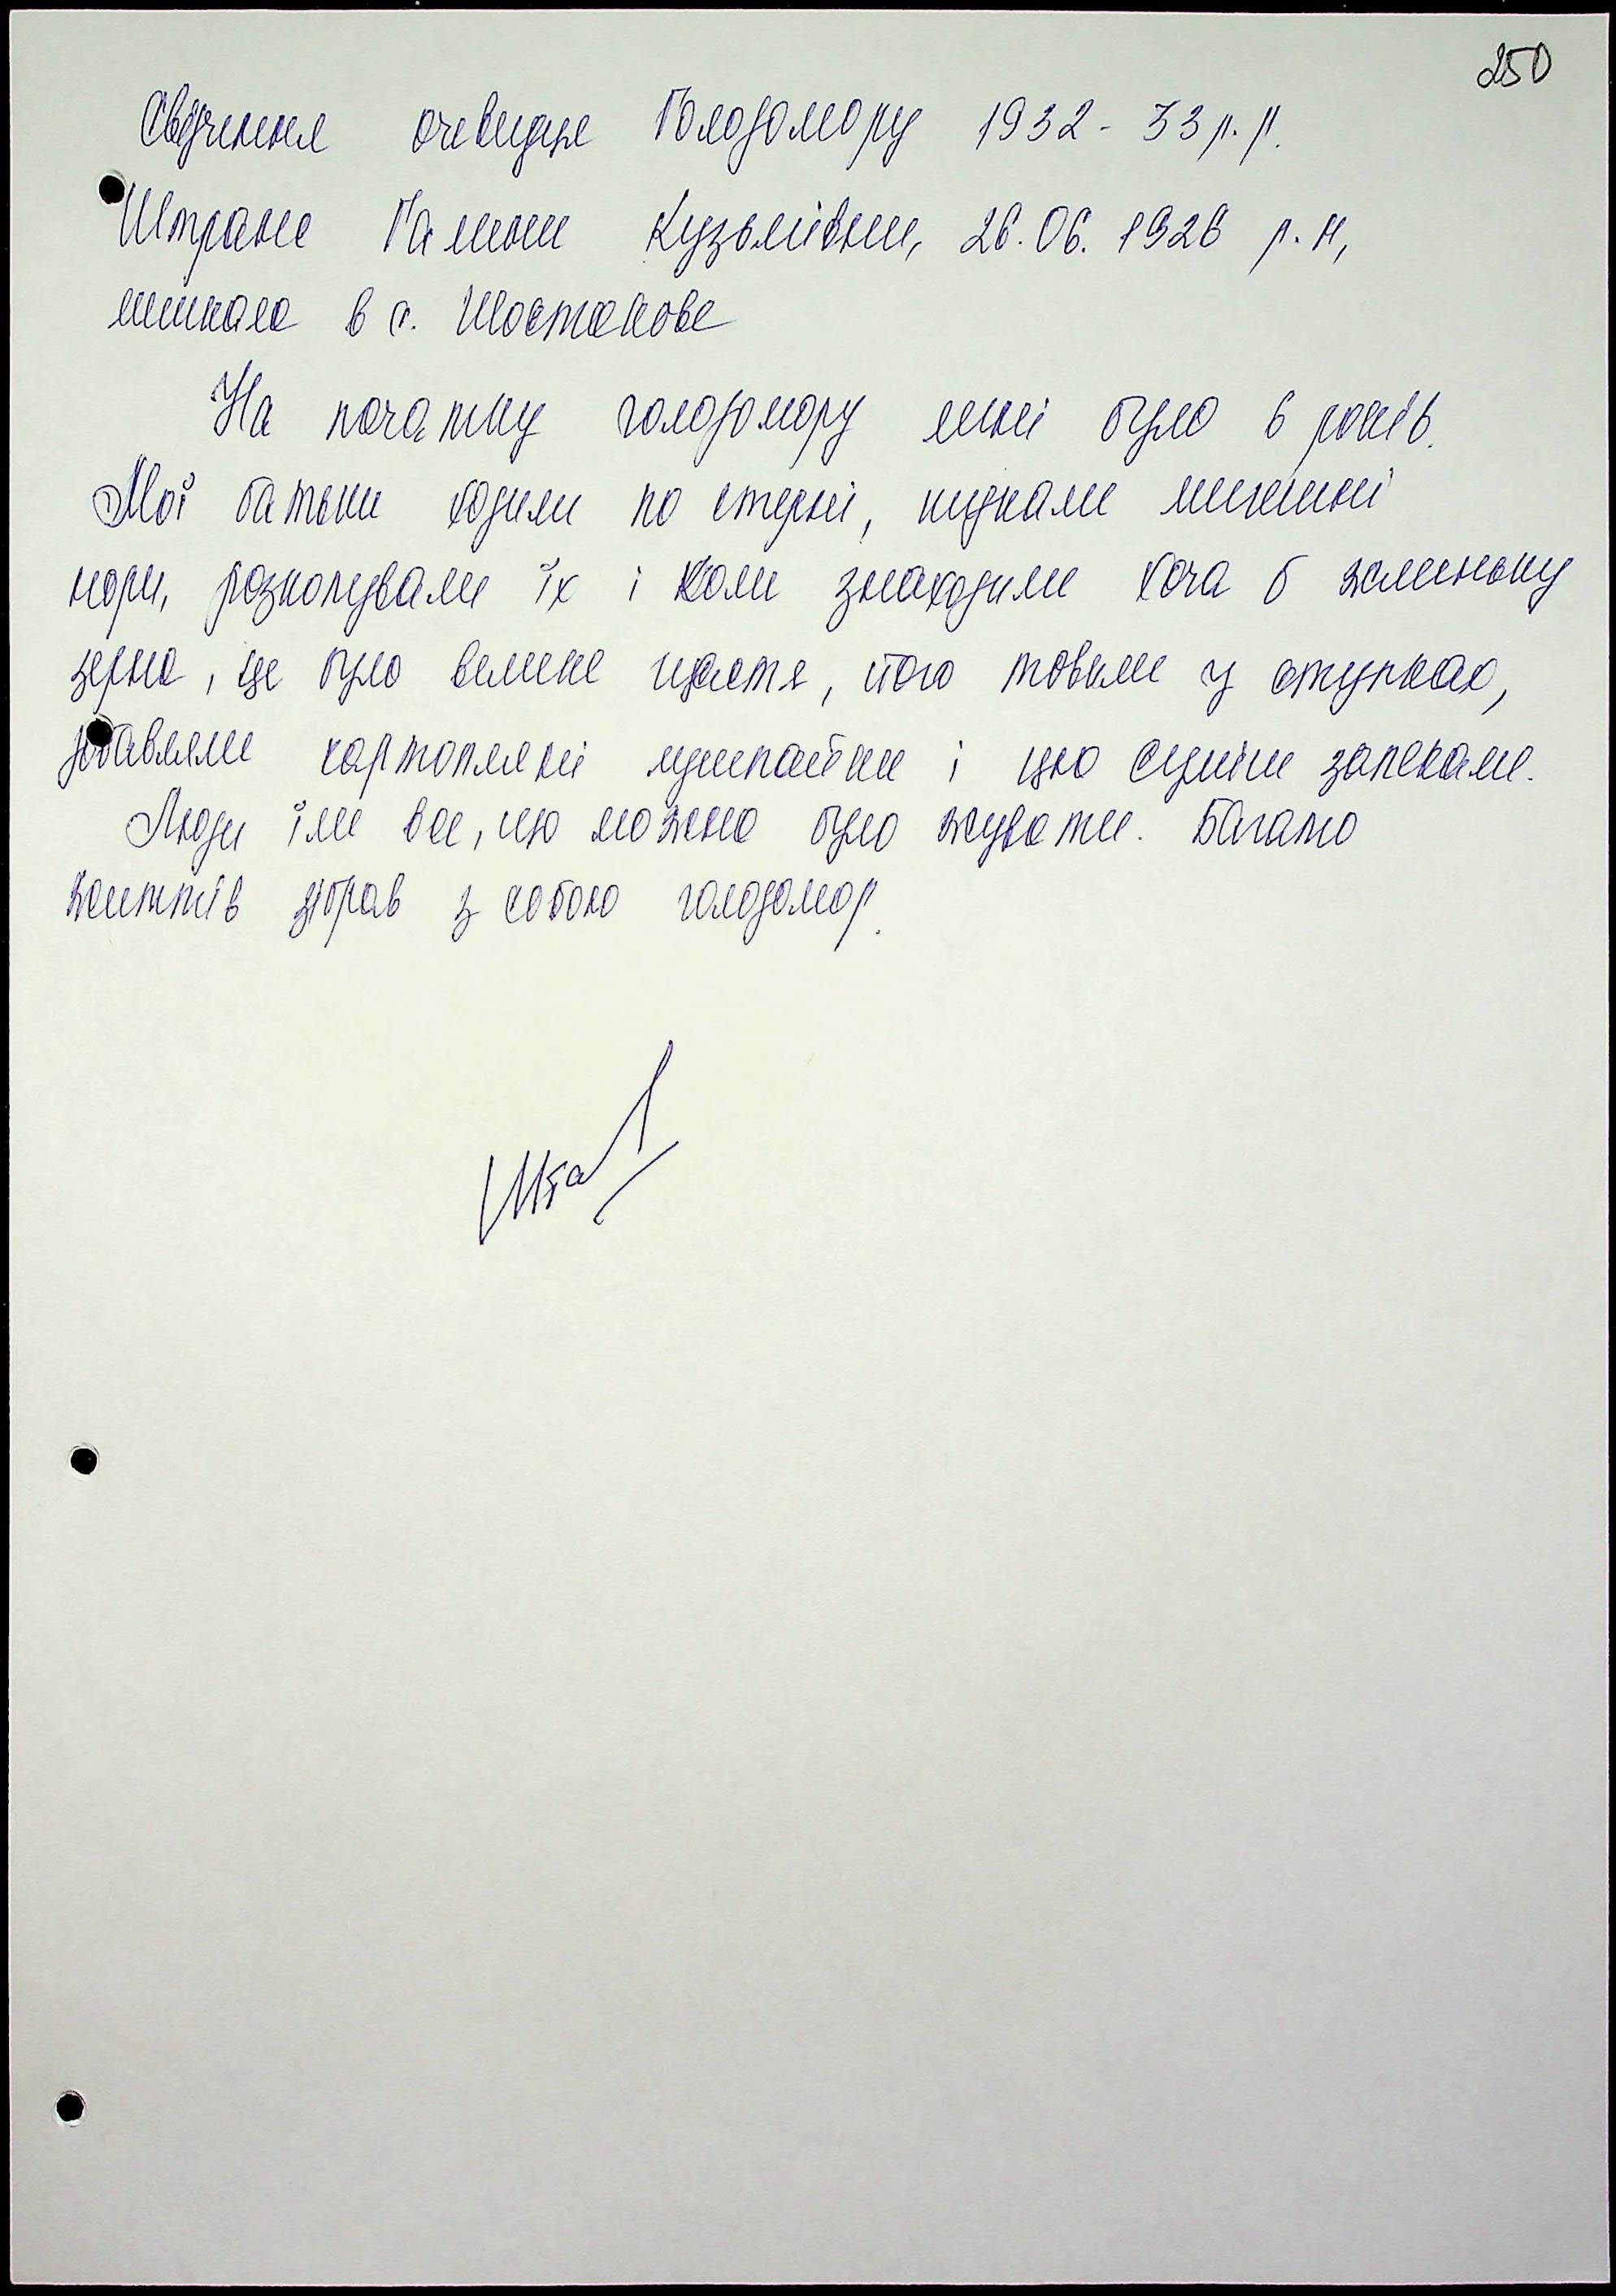 250
Свідчення очевидця Голодомору 1932 - 33 р.р.
Штране Галини Кузьмівни, 26.06.1926 р.н,
мешкала в с. Шостакове
На початку голодомору мені було 6 років.
Мої батьки ходили по стерні, шукали мишині
нори, розкопували їх і коли знаходили хоча б жменьку
зерна, це було велике щастя, його товкли у ступках,
добавляли картопляні лушпайки і цю суміш запекали.
Люди їли все, що можна було жувати. Багато
життів зібрав з собою голодомор.